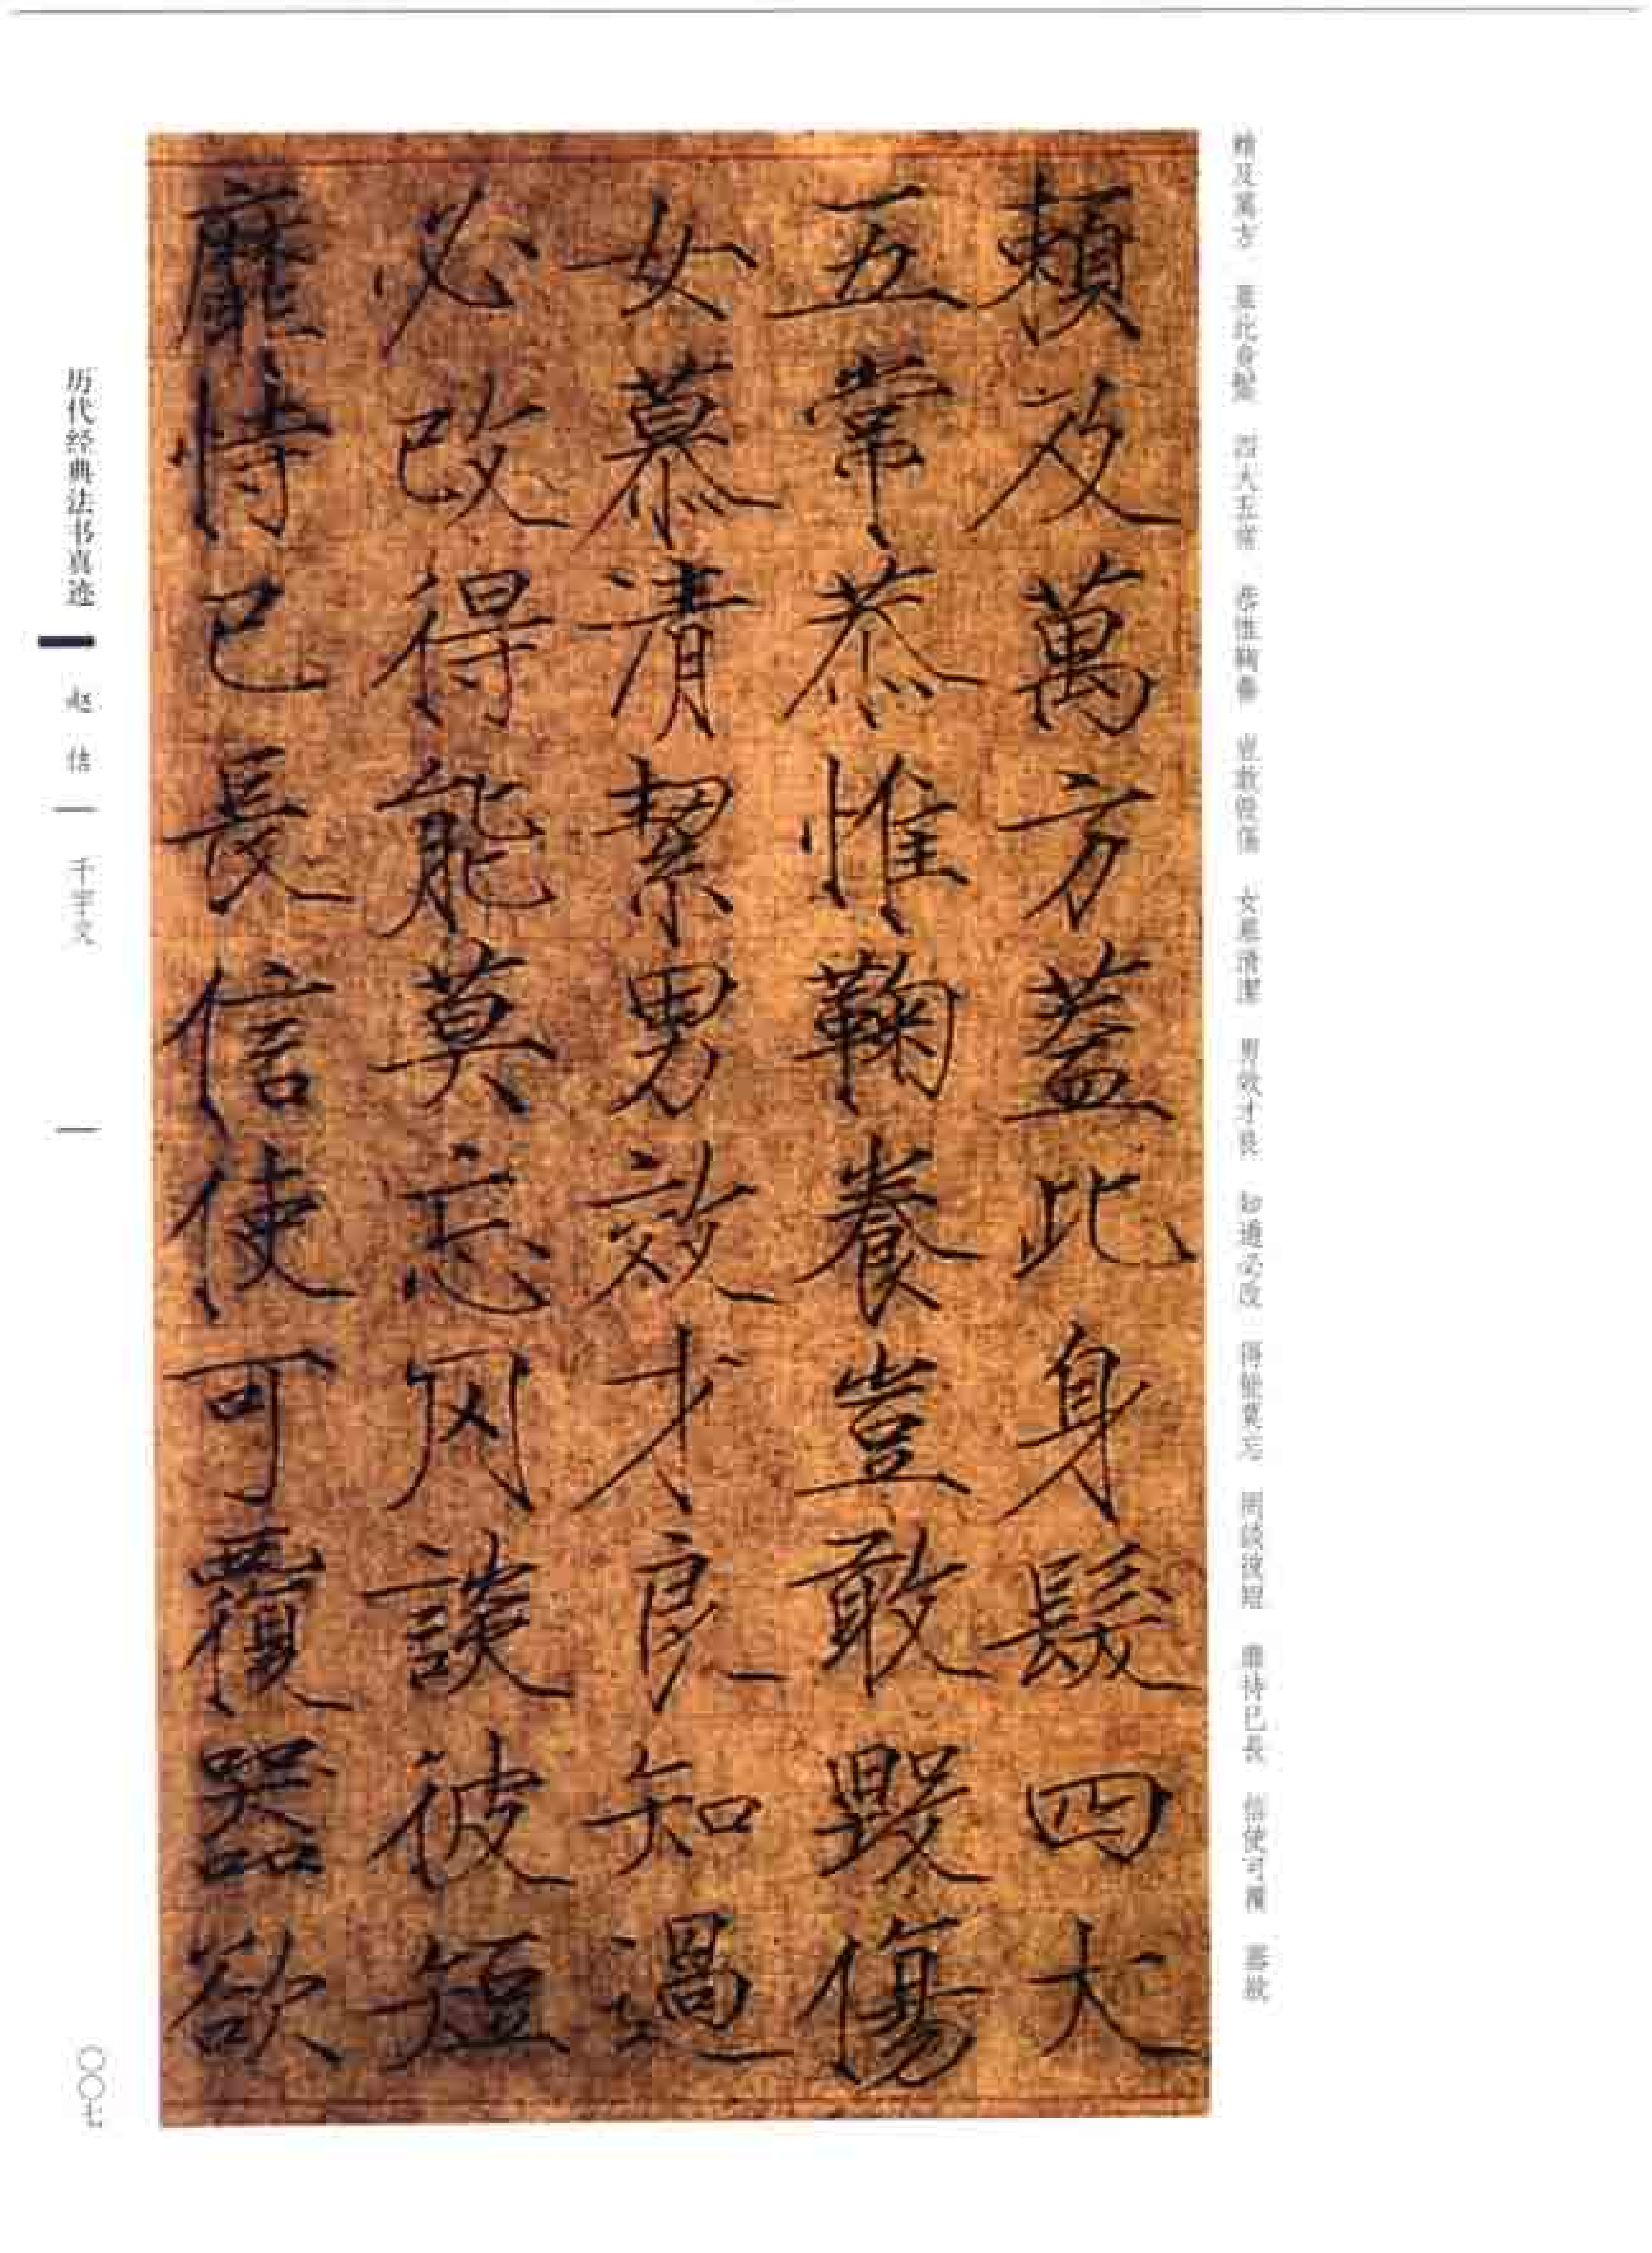 賴及萬方 蓋此身髮 四大五常 恭惟鞠養 豈敢毀傷 女慕清潔 男效才良 知過必改 得能莫忘 罔談彼短 靡恃已長 信使可覆 器欲
頼及萬方蓋此身髮四大
五常恭惟鞠養豈敢毀傷
女慕清絜男效才良知過
必改得能莫忘罔談彼短
靡恃已長信使可覆器欲
历代经典法书真迹 赵佶 千字文
〇〇七